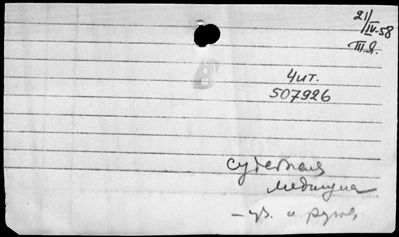 21/IV-58
Ш.Я.
Чит.
507926
судебная
медицина